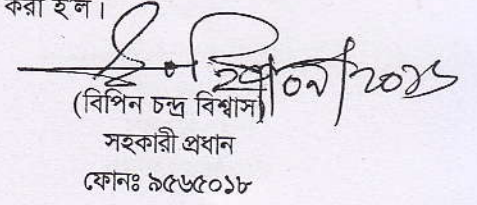 করা হ'ল।
(বিপিন চন্দ্র বিশ্বাস)
সহকারী প্রধান
ফোনঃ ৯৫৬৫০১৮